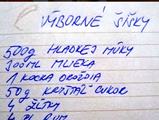 VÝBORNÉ ŠIŠKY
500g HLADKEJ MÚKY
300ML MLIEKA
1 KOCKA DROŽDIA
50g KRYŠTÁL CUKOR
4 ŽĹTKY
RUM